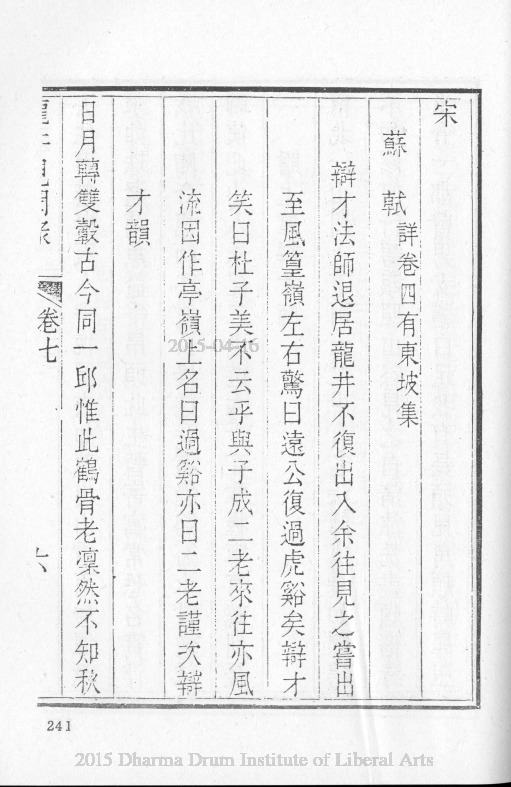 宋
蘇軾詳卷四有東坡集
辯才法師退居龍井不復出入余往見之嘗出
至風篁嶺左右驚曰遠公復過虎谿矣辯才
笑曰杜子美不云乎與子成二老來往亦風
流因作亭嶺上名曰過谿亦曰二老謹次辯
才韻
日月轉雙轂古今同一邱惟此鶴骨老凜然不知秋
卷七
2015-04-16
241
2015 Dharma Drum Institute of Liberal Arts